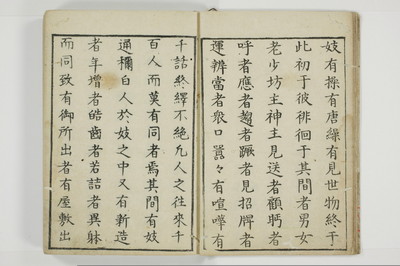 妓有操有唐繰有見世物終于
此初于彼徘徊于其間者男女
老少坊主神主見送者顧眄者
呼者應者趨者蹶者見招牌者
運辨當者衆口囂々有喧嘩有
千話終繹不絶凡人之往來千
百人而莫有同者焉其間有妓
通稱白人於妓之中又有新造
者年增者皓齒者若詰者異躰
而同致有御所出者有屋敷出